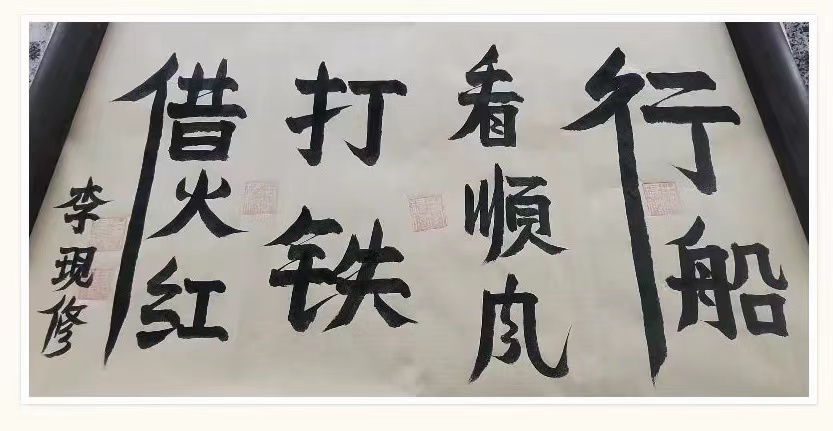 行船
看順风
打铁
借火红
李现修